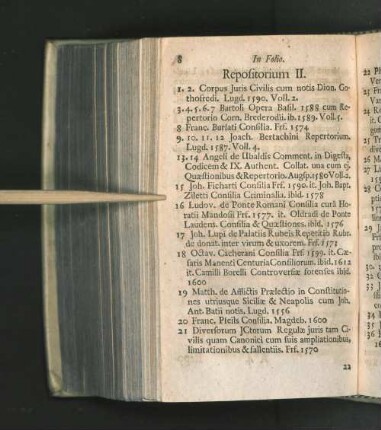 8 In Folio.
Repositorium II.
1. 2. Corpus Juris Civilis cum notis Dion. Go-
thofredi. Lugd. 1590. Voll. 2.
3. 4. 5. 6. 7 Bartoli Opera Basil. 1588 cum Re-
pertorio Corn. Brederodii. ib. 1589. Voll. 5.
8 Franc. Bursati Consilia. Frf. 1574
9. 10. 11. 12 Joach. Bertachini Repertorium.
Lugd. 1587. Voll. 4.
13. 14 Angeli de Ubaldis Comment. in Digesta,
Codicem & IX. Authent. Collat. una cum ej.
Quæstionibus & Repertorio. Aug. 1580 Voll 2.
15 Joh. Ficharti Consilia Frf. 1590. it. Joh. Bapt.
Ziletti Consilia Criminalia. ibid. 1578
16 Ludov. de Ponte Romani Consilia cura Ho-
ratii Mandosii Frf. 1577. it. Oldradi de Ponte
Laudens. Consilia & Quæstiones. ibid. 1576
17 Joh. Lupi de Palatiis Rubeis Repetitio Rubr.
de donat. inter virum & uxorem. Frf. 1571
18 Octav. Cacherani Consilia Frf 1599. it. Cæ-
saris Manenti Centuria Consiliorum. ibid. 1612
it. Camilli Borelli Controversiæ forenses ibid.
1600
19 Matth. de Afflictis Prælectio in Constitutio-
nes utriusque Siciliæ & Neapolis cum Joh.
Ant. Batii notis. Lugd. 1556
20 Franc. Pfeils Consilia. Magdeb. 1600
21 Diversorum JCtorum Regulæ juris tam Ci-
vilis quam Canonici cum suis ampliationibus,
limitationibus & fallentiis. Frf. 1570
22